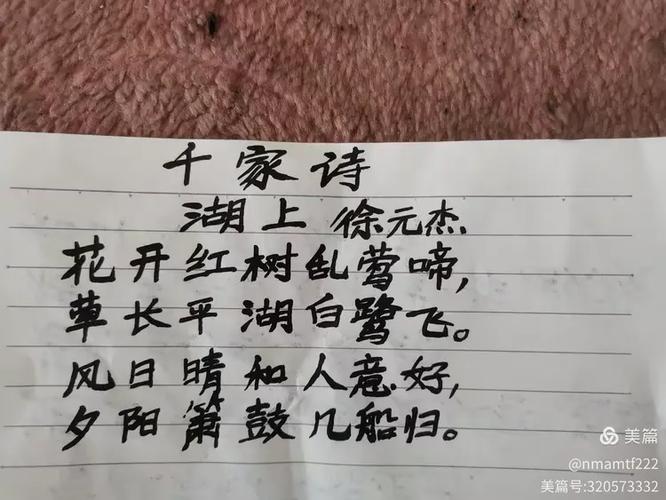 千家诗
湖上 徐元杰
花开红树乱莺啼,
草长平湖白鹭飞。
风日晴和人意好,
夕阳箫鼓几船归。
美篇
@nmamtf222
美篇号:320573332